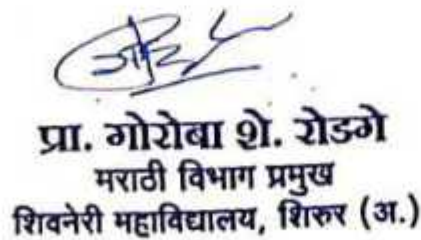 प्रा. गोरोबा शे. रोडगे
मराठी विभाग प्रमुख
शिवनेरी महाविद्यालय, शिरुर (अ.)